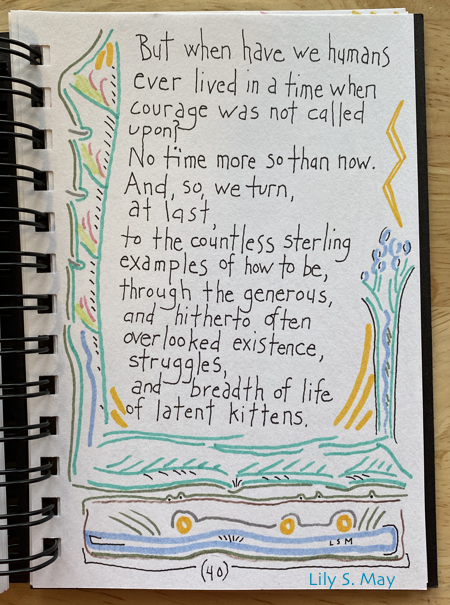 But when have we humans
ever lived in a time when
courage was not called
upon?
No time more so than now.
And, so, we turn,
at last,
to the countless sterling
examples of how to be,
through the generous,
and hitherto often
overlooked existence,
struggles,
and breadth of life
of latent kittens.
LSM
(40)
Lily S. May